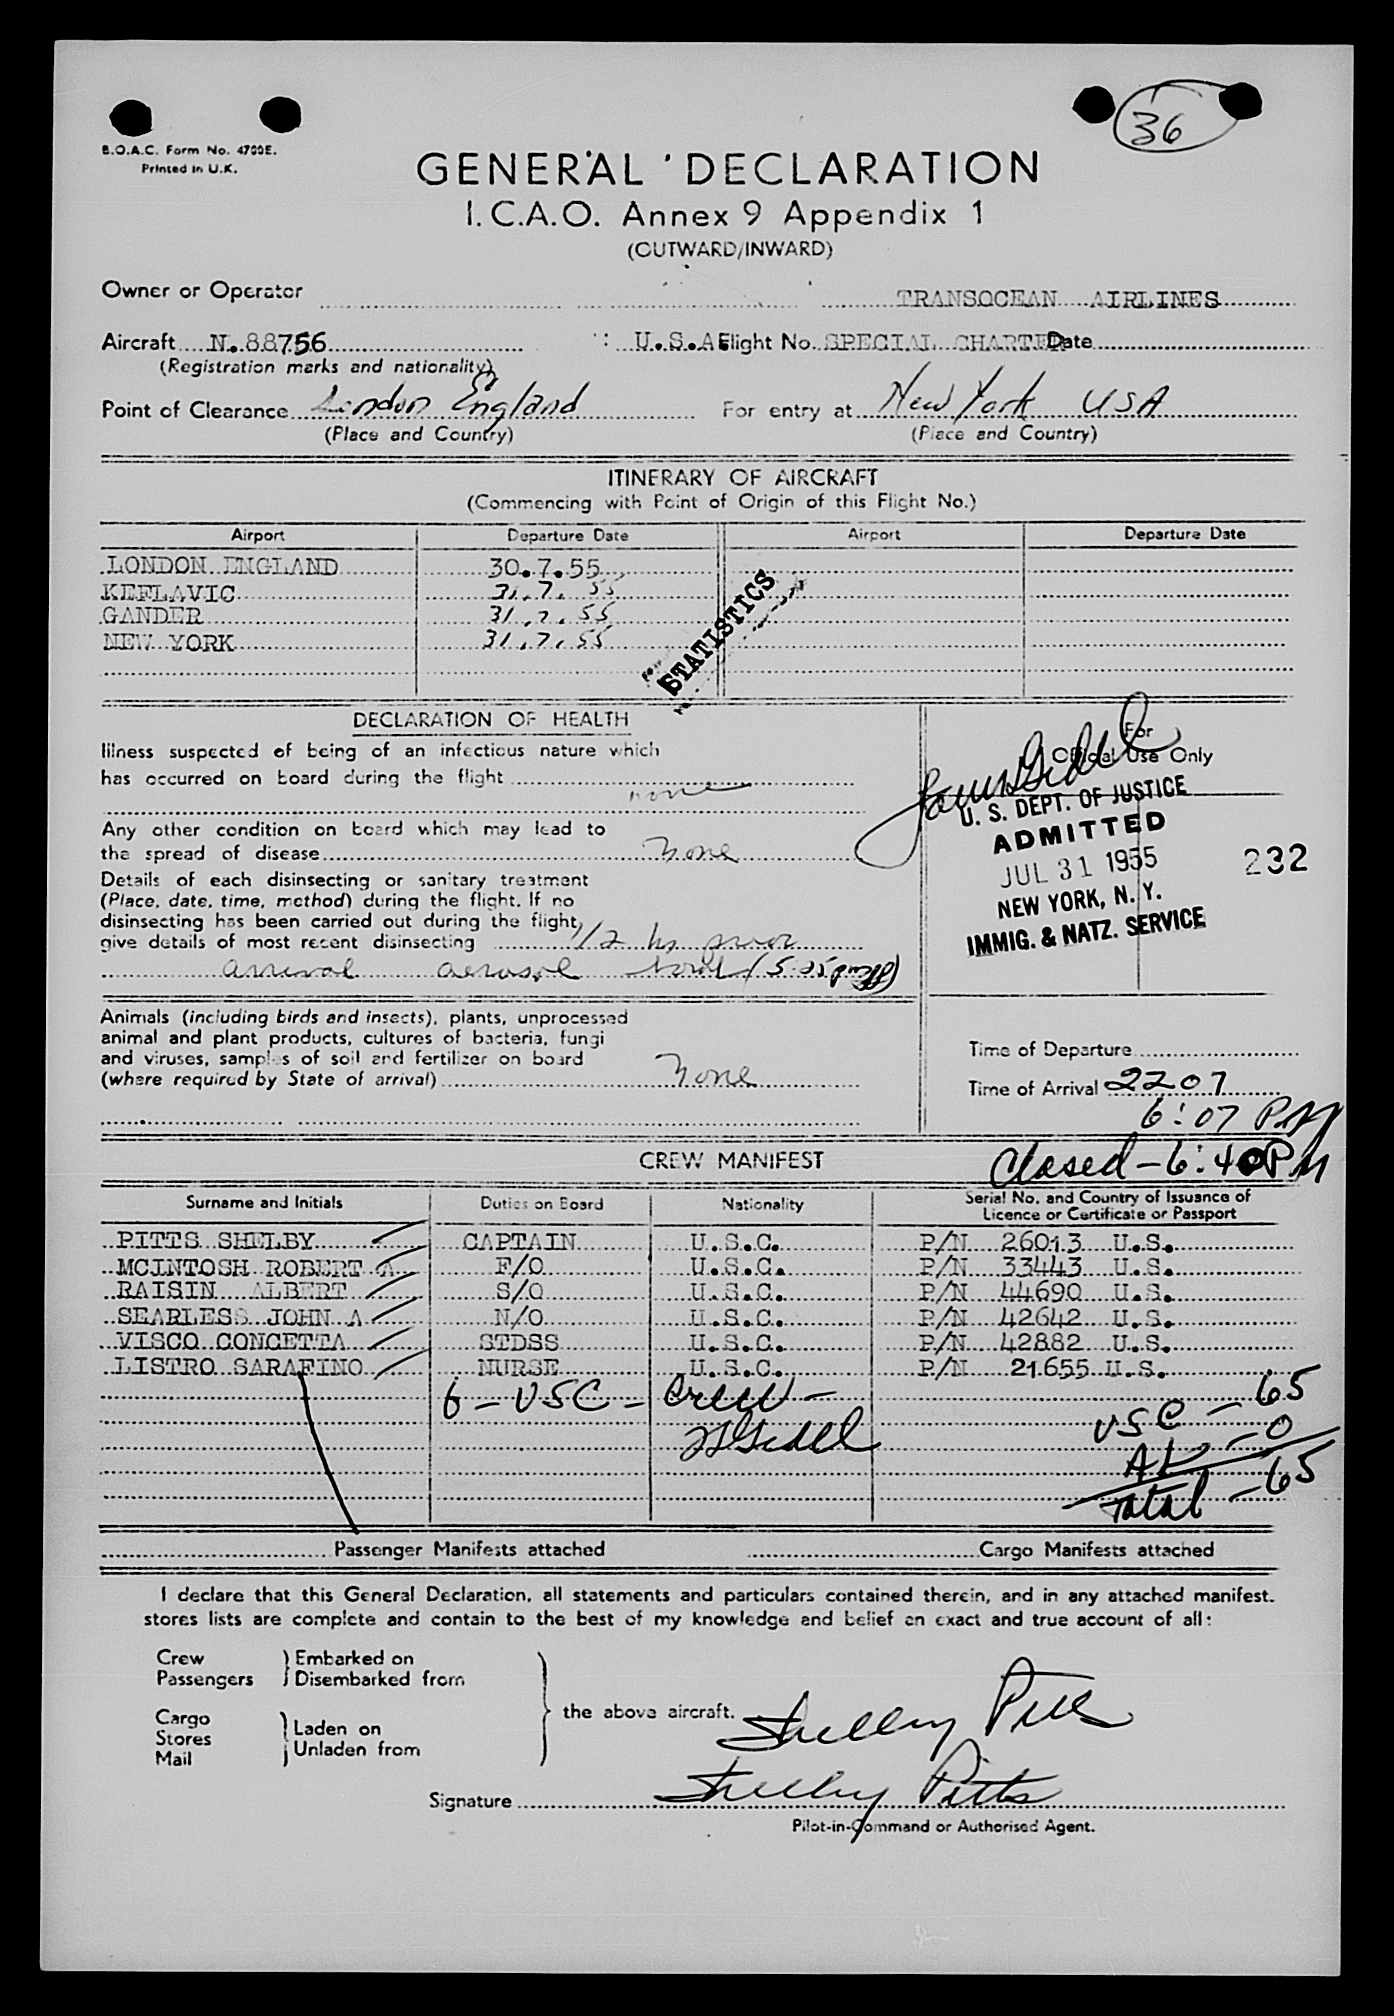 36
B.O.A.C. Form No. 4700E.
Printed in U.K.
GENERAL DECLARATION
I.C.A.O. Annex 9 Appendix 1
(OUTWARD/INWARD)
Owner or Operator TRANSOCEAN AIRLINES
Aircraft N.88756 U.S.A. Flight No. SPECIAL CHARTER Date
(Registration marks and nationality)
Point of Clearance London England For entry at New York USA
(Place and Country) (Place and Country)
ITINERARY OF AIRCRAFT
(Commencing with Point of Origin of this Flight No.)
Airport Departure Date Airport Departure Date
LONDON ENGLAND 30.7.55
KEFLAVIC 31.7.55
GANDER 31.7.55
NEW YORK 31.7.55
STATISTICS
DECLARATION OF HEALTH
Illness suspected of being of an infectious nature which
has occurred on board during the flight
none
Any other condition on board which may lead to
the spread of disease None
Details of each disinsecting or sanitary treatment
(Place, date, time, method) during the flight. If no
disinsecting has been carried out during the flight,
give details of most recent disinsecting 1/2 hr prior
arrival aerosol
For
Official Use Only
U. S. DEPT. OF JUSTICE
ADMITTED
JUL 31 1955 232
NEW YORK, N. Y.
IMMIG. & NATZ. SERVICE
Animals (including birds and insects), plants, unprocessed
animal and plant products, cultures of bacteria, fungi
and viruses, samples of soil and fertilizer on board
(where required by State of arrival) None
Time of Departure
Time of Arrival 2207
6:07 PM
Closed - 6:40 PM
CREW MANIFEST
Surname and Initials Duties on Board Nationality Serial No. and Country of Issuance of
Licence or Certificate or Passport
PITTS SHELBY CAPTAIN U.S.C. P/N 26013 U.S.
MCINTOSH ROBERT A F/O U.S.C. P/N 33443 U.S.
RAISIN ALBERT S/O U.S.C. P/N 44690 U.S.
SEARLESS JOHN A N/O U.S.C. P/N 42642 U.S.
VISCO CONCETTA STDSS U.S.C. P/N 42882 U.S.
LISTRO SARAFINO NURSE U.S.C. P/N 21655 U.S.
6 - USC - Crew -
USC - 65
AL - 0
Total - 65
Passenger Manifests attached Cargo Manifests attached
I declare that this General Declaration, all statements and particulars contained therein, and in any attached manifest.
stores lists are complete and contain to the best of my knowledge and belief an exact and true account of all:
Crew } Embarked on
Passengers } Disembarked from
the above aircraft. Shelby Pitts
Cargo
Stores } Laden on
Mail } Unladen from
Signature Shelby Pitts
Pilot-in-Command or Authorised Agent.